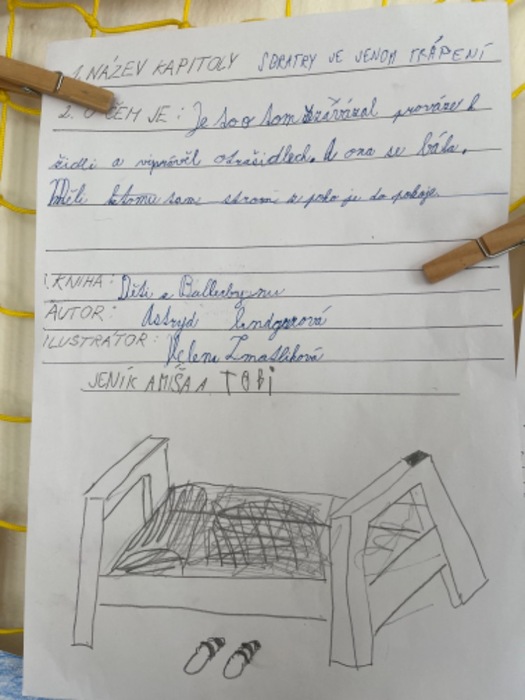 1. NÁZEV KAPITOLY S BRATRY JE JENOM TRÁPENÍ
2. O ČEM JE: Je to o tom provázek k
židli a vyprávěl o strašidlech. A ona se bála.
Měli k tomu tam strom z pokoje do pokoje.
1. KNIHA: Děti z Bullerbynu
AUTOR: Astrid Lindgrenová
ILUSTRÁTOR: Helena Zmatlíková
JENÍK A MIŠA A TOBI